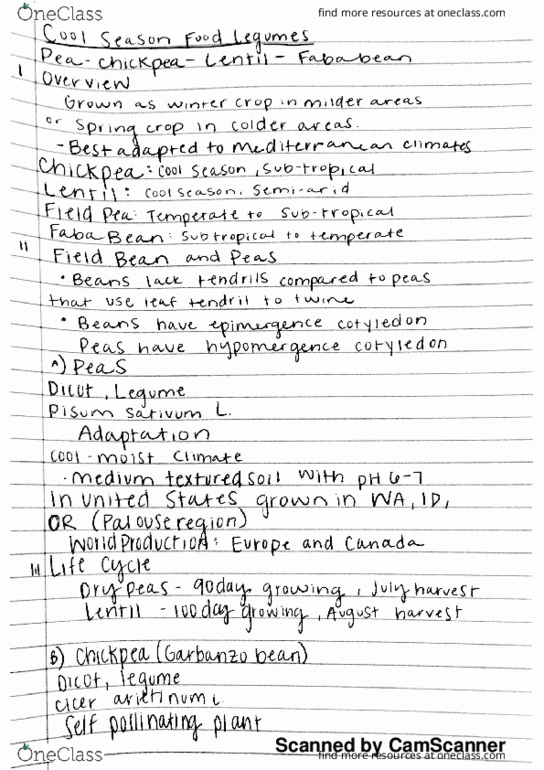 OneClass
find more resources at oneclass.com
Cool Season Food Legumes
Pea - Chickpea - Lentil - Faba bean
I
Overview
Grown as winter crop in milder areas
or spring crop in colder areas.
- Best adapted to Mediterranean climates
Chickpea: cool season, sub-tropical
Lentil: cool season, semi-arid
Field Pea: Temperate to sub-tropical
Faba Bean: subtropical to temperate
II
Field Bean and Peas
• Beans lack tendrils compared to peas
that use leaf tendril to twine
• Beans have epimergence cotyledon
Peas have hypomergence cotyledon
A) Peas
Dicot, Legume
Pisum sativum L.
Adaptation
cool-moist climate
• medium textured soil with pH 6-7
In United States grown in WA, ID,
OR (Palouse region)
World Production: Europe and Canada
III Life Cycle
Dry peas - 90 day growing, July harvest
Lentil - 100 day growing, August harvest
B) Chickpea (Garbanzo bean)
Dicot, legume
cicer arietinum L.
Self pollinating plant
OneClass
Scanned by CamScanner
find more resources at oneclass.com